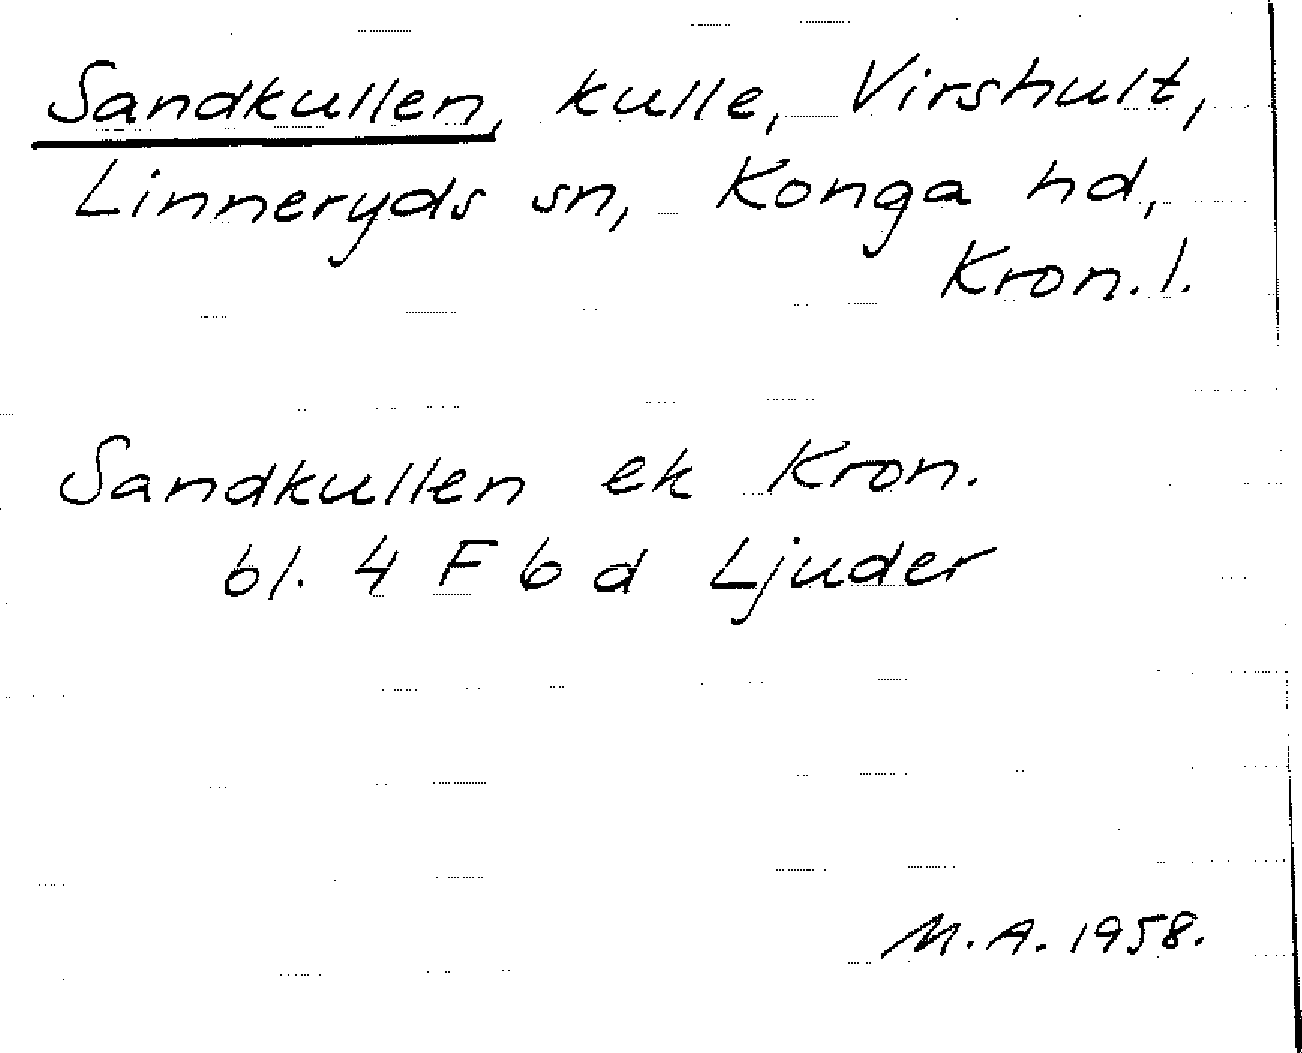 Sandkullen, kulle, Virshult,
Linneryds sn, Konga hd,
Kron. l.
Sandkullen ek Kron.
bl. 4 F 6 d Ljuder
M. A. 1958.